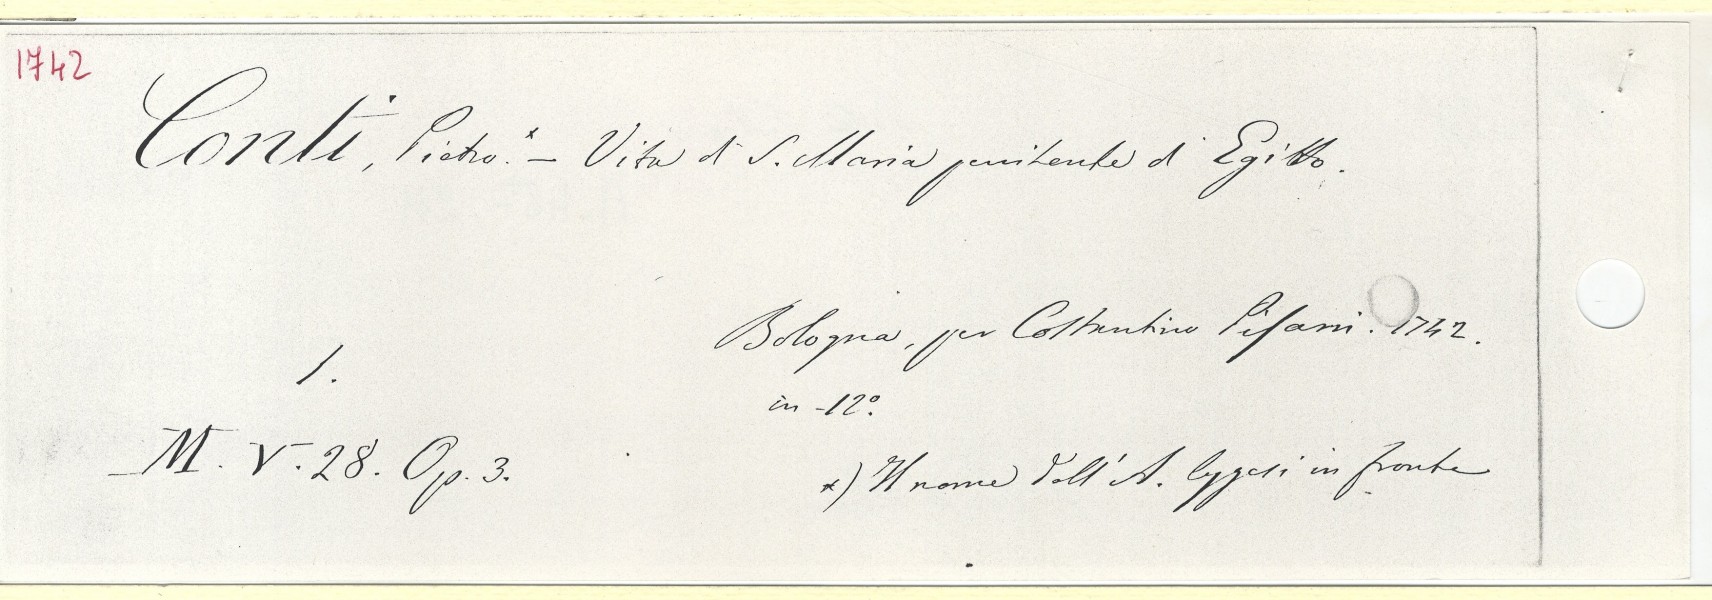 1742
Conti, Pietro.* – Vita di S. Maria penitente d' Egitto.
Bologna, per Costantino Pisarri. 1742.
1.
in -12º.
M. V. 28. Op. 3.
*) Il nome dell' A. leggesi in fronte